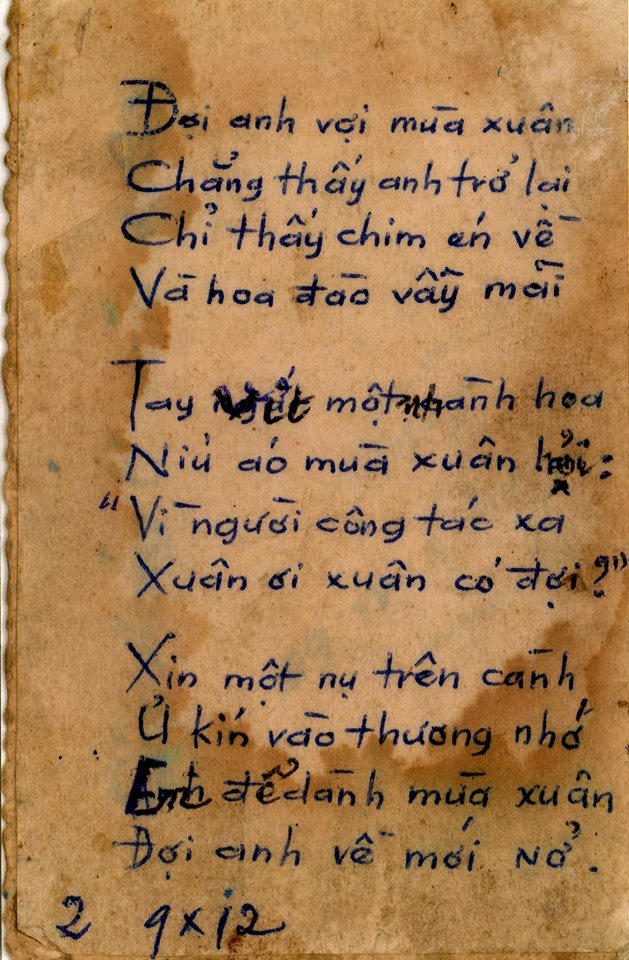 Đợi anh vợi mùa xuân
Chẳng thấy anh trở lại
Chỉ thấy chim én về
Và hoa đào vẫy mãi
Tay vít một nhành hoa
Níu áo mùa xuân hỏi:
"Vì người công tác xa
Xuân ơi xuân có đợi?"
Xin một nụ trên cành
Ủ kín vào thương nhớ
Em để dành mùa xuân
Đợi anh về mới nở.
2 9x12